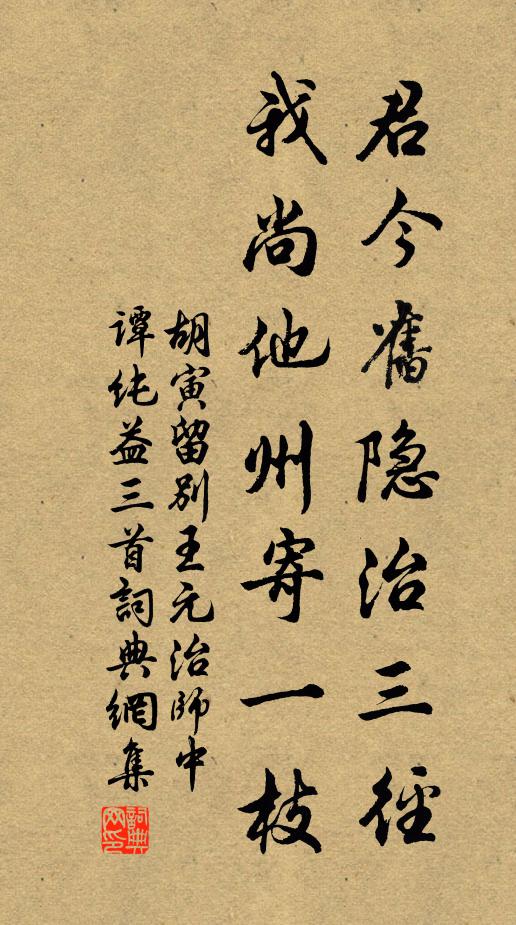 君今舊隐治三径
我尚他州寄一枝
胡寅留别王元治師中
譚純益三首詞典網集
詞典网印